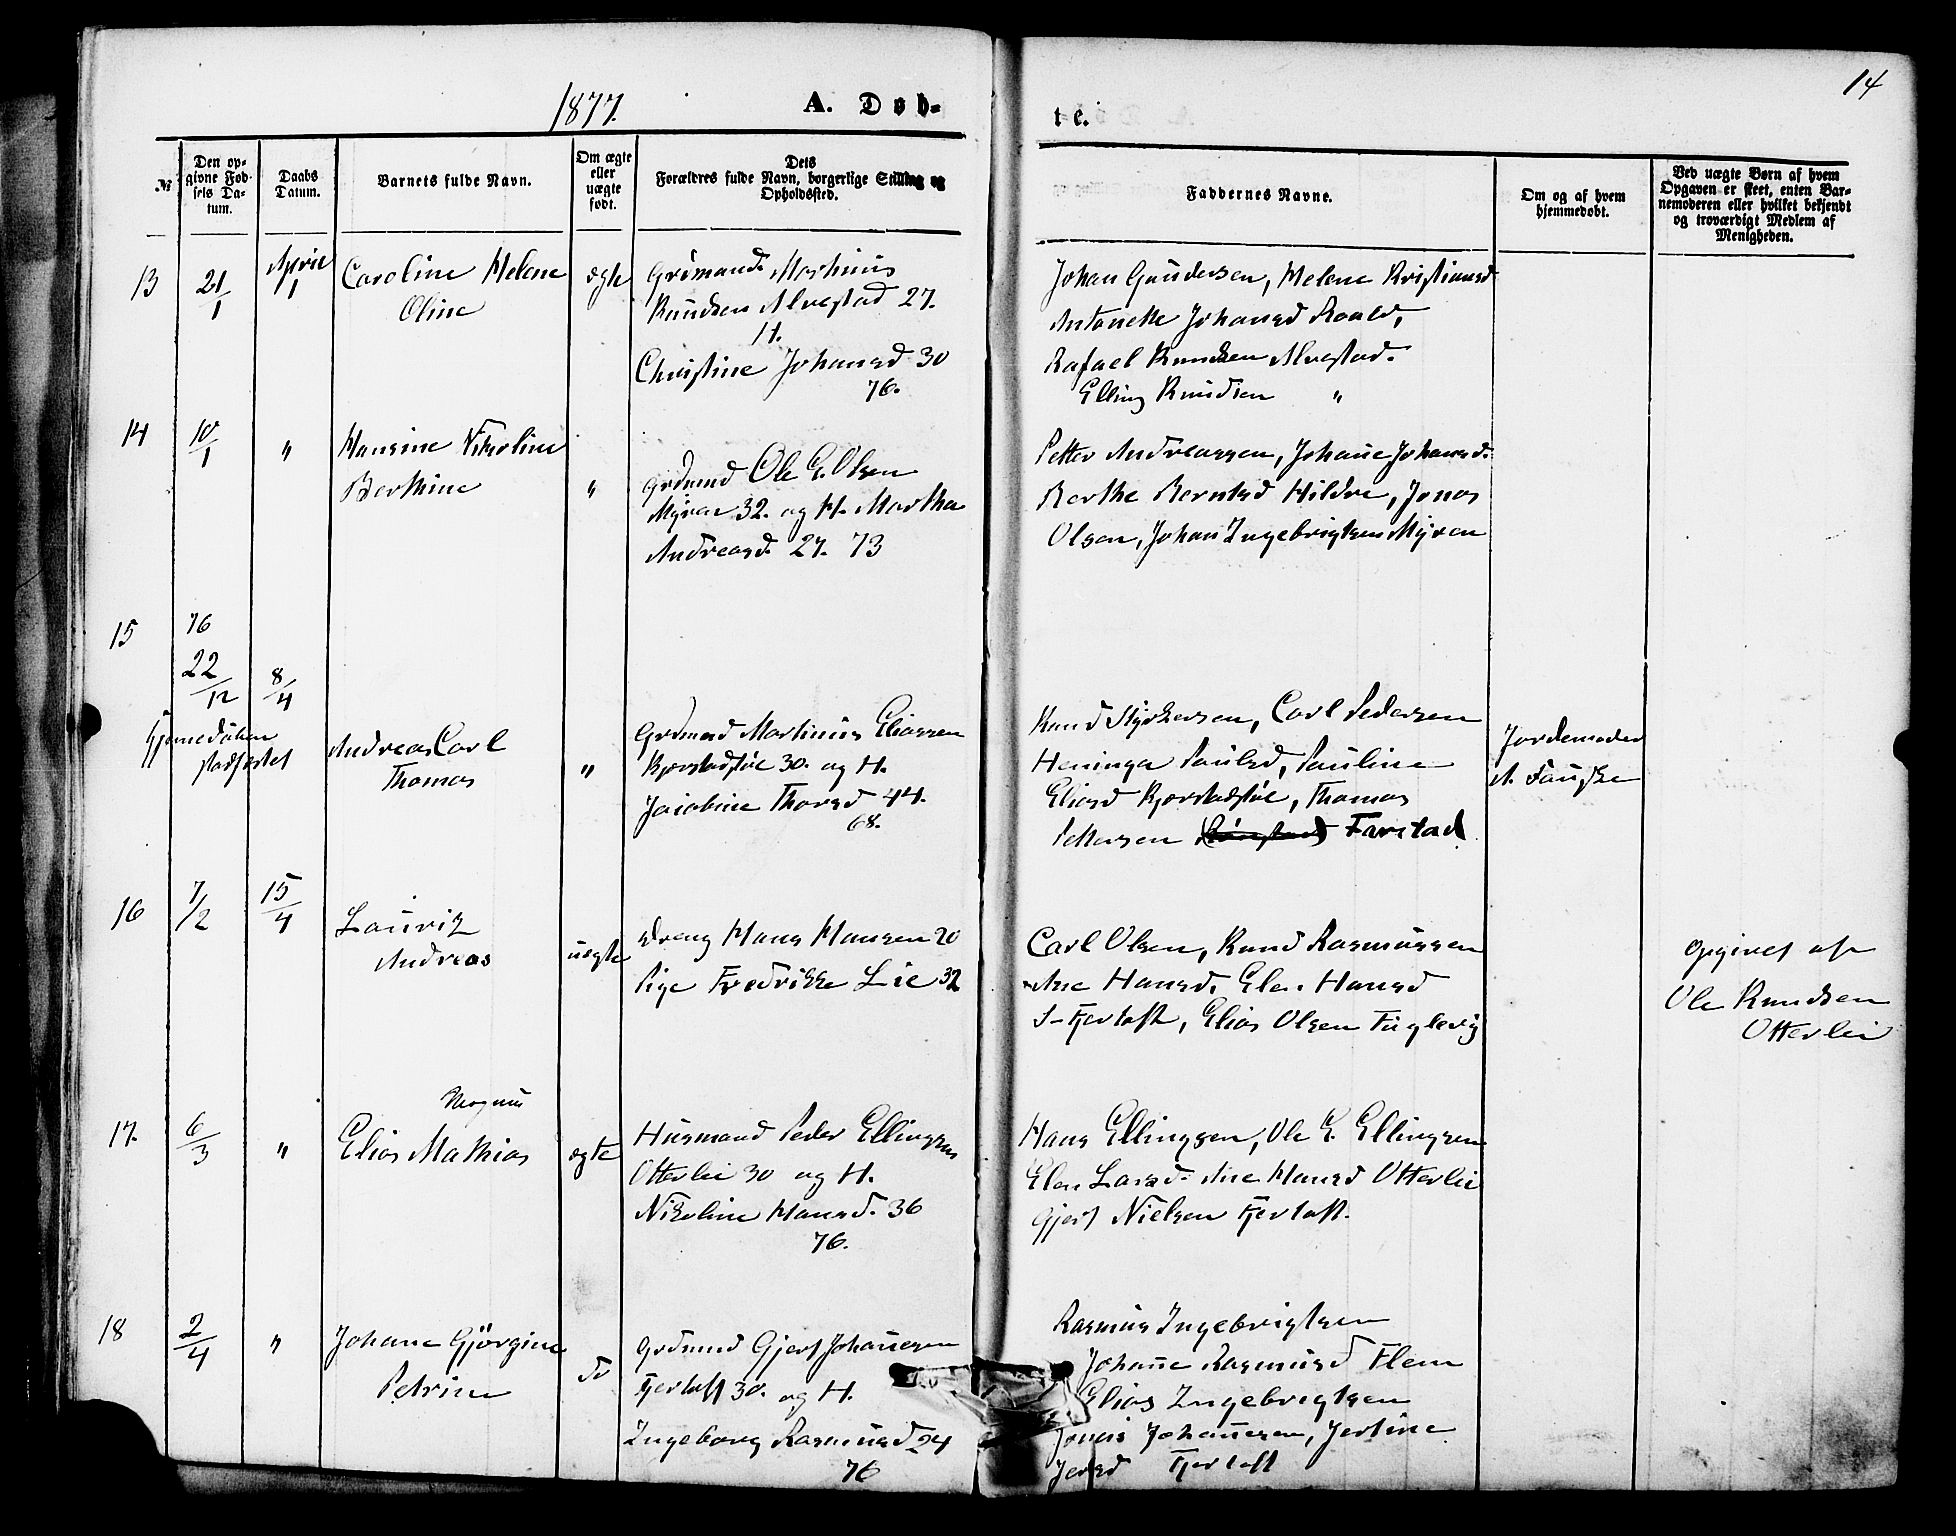 1877.
A. Døb-
te.
14
№
Den op-
givne Fød-
sels Da-
tum.
Daabs
Datum.
Barnets fulde Navn.
Om ægte
eller
uægte
født.
Dets
Forældres fulde Navn, borgerlige Stilling og
Opholdssted.
Faddernes Navne.
Om og af hvem
hjemmedøbt.
Ved uægte Børn af hvem
Opgaven er skeet, enten Bar-
nemoderen eller hvilket bekjendt
og troværdigt Medlem af
Menigheden.
13
21/1
April
1
Caroline Helene
Oline
ægte
Grdmand Martinus
Knudsen Alvestad 27.
H.
Christine Johansd 30
76.
Johan Gundersen, Helene Kristiansd
Antonette Johansd Roald,
Rafael Knudsen Alvestad.
Elling Knudsen "
14
10/1
"
Hansine Nikoline
Berthine
"
Grdmd Ole E. Olsen
Myren 32. og H. Martha
Andreasd. 27. 73
Petter Andreassen, Johane Johansd.
Berthe Berntsd Hildre, Jonas
Olsen, Johan Ingebrigtsen Myren
15
76
22/12
8/4
hjemmedøben
stadfæstet
Andreas Carl
Thomas
"
Grdmand Martinus Eliassen
Kjerstadstøl 30. og H.
Jacobine Thorsd 44.
68.
Knud Styrkersen, Carl Pedersen
Heninga Paulsd, Pauline
Eliasd Kjerstadstøl, Thomas
Pettersen Farstad
Jordemoder
A. Fauske
16
7/2
15/4
Lauritz
Andreas
uægte
Dreng Hans Hansen 20
Pige Fredrikke Lie 32
Carl Olsen, Knud Rasmussen
Ane Hansd. Elen Hansd
S-Fjertoft, Elias Olsen Fuglevig
Opgivet af
Ole Knudsen
Otterlei
17.
6/3
"
Magnus
Elias Mathias
ægte
Husmand Peder Ellingsen
Otterlei 30 og H.
Nikoline Hansd. 36
76.
Hans Ellingsen, Ole E. Ellingsen
Elen Larsd. Ane Hansd Otterlei
Gjert Nielsen Fjertoft.
18
2/4
"
Johane Gjørgine
Petrine
do
Grdmand Gjert Johannesen
Fjertoft 30. og H.
Ingeborg Rasmusd 24
76
Rasmus Ingebrigtsen
Johanne Rasmusd Flem
Elias Ingebrigtsen
Jonas Johannesen, Jertine
Jensd Fjertoft